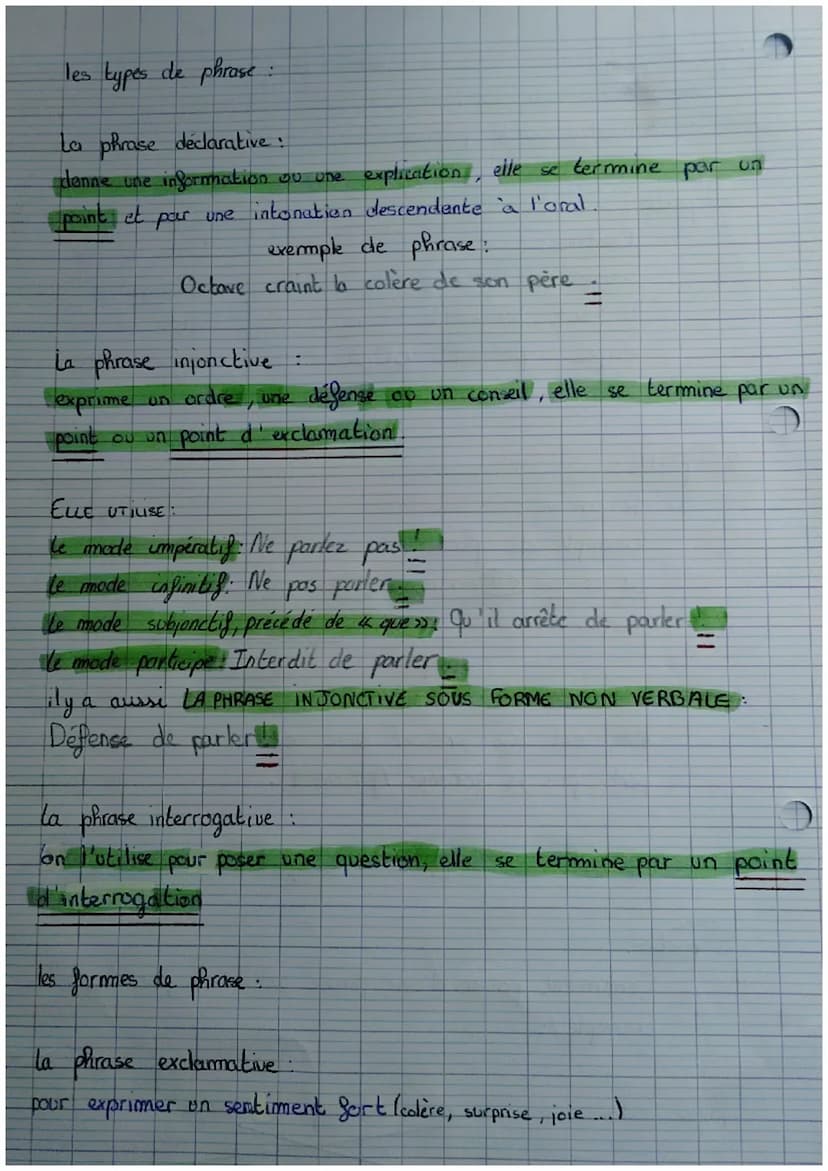 les types de phrase :
La phrase déclarative :
donne une information ou une explication, elle se termine par un
point et par une intonation descendente à l'oral.
exemple de phrase :
Octave craint la colère de son père .
La phrase injonctive :
exprime un ordre, une défense ou un conseil, elle se termine par un
point ou un point d'exclamation.
ELLE UTILISE :
le mode impératif : Ne parlez pas !
le mode infinitif : Ne pas parler .
le mode subjonctif, précédé de « que » : Qu'il arrête de parler !
le mode participe : Interdit de parler .
il y a aussi LA PHRASE INJONCTIVE SOUS FORME NON VERBALE :
Défense de parler !
la phrase interrogative :
on l'utilise pour poser une question, elle se termine par un point
d'interrogation
les formes de phrase :
la phrase exclammative :
pour exprimer un sentiment fort (colère, surprise, joie ...)